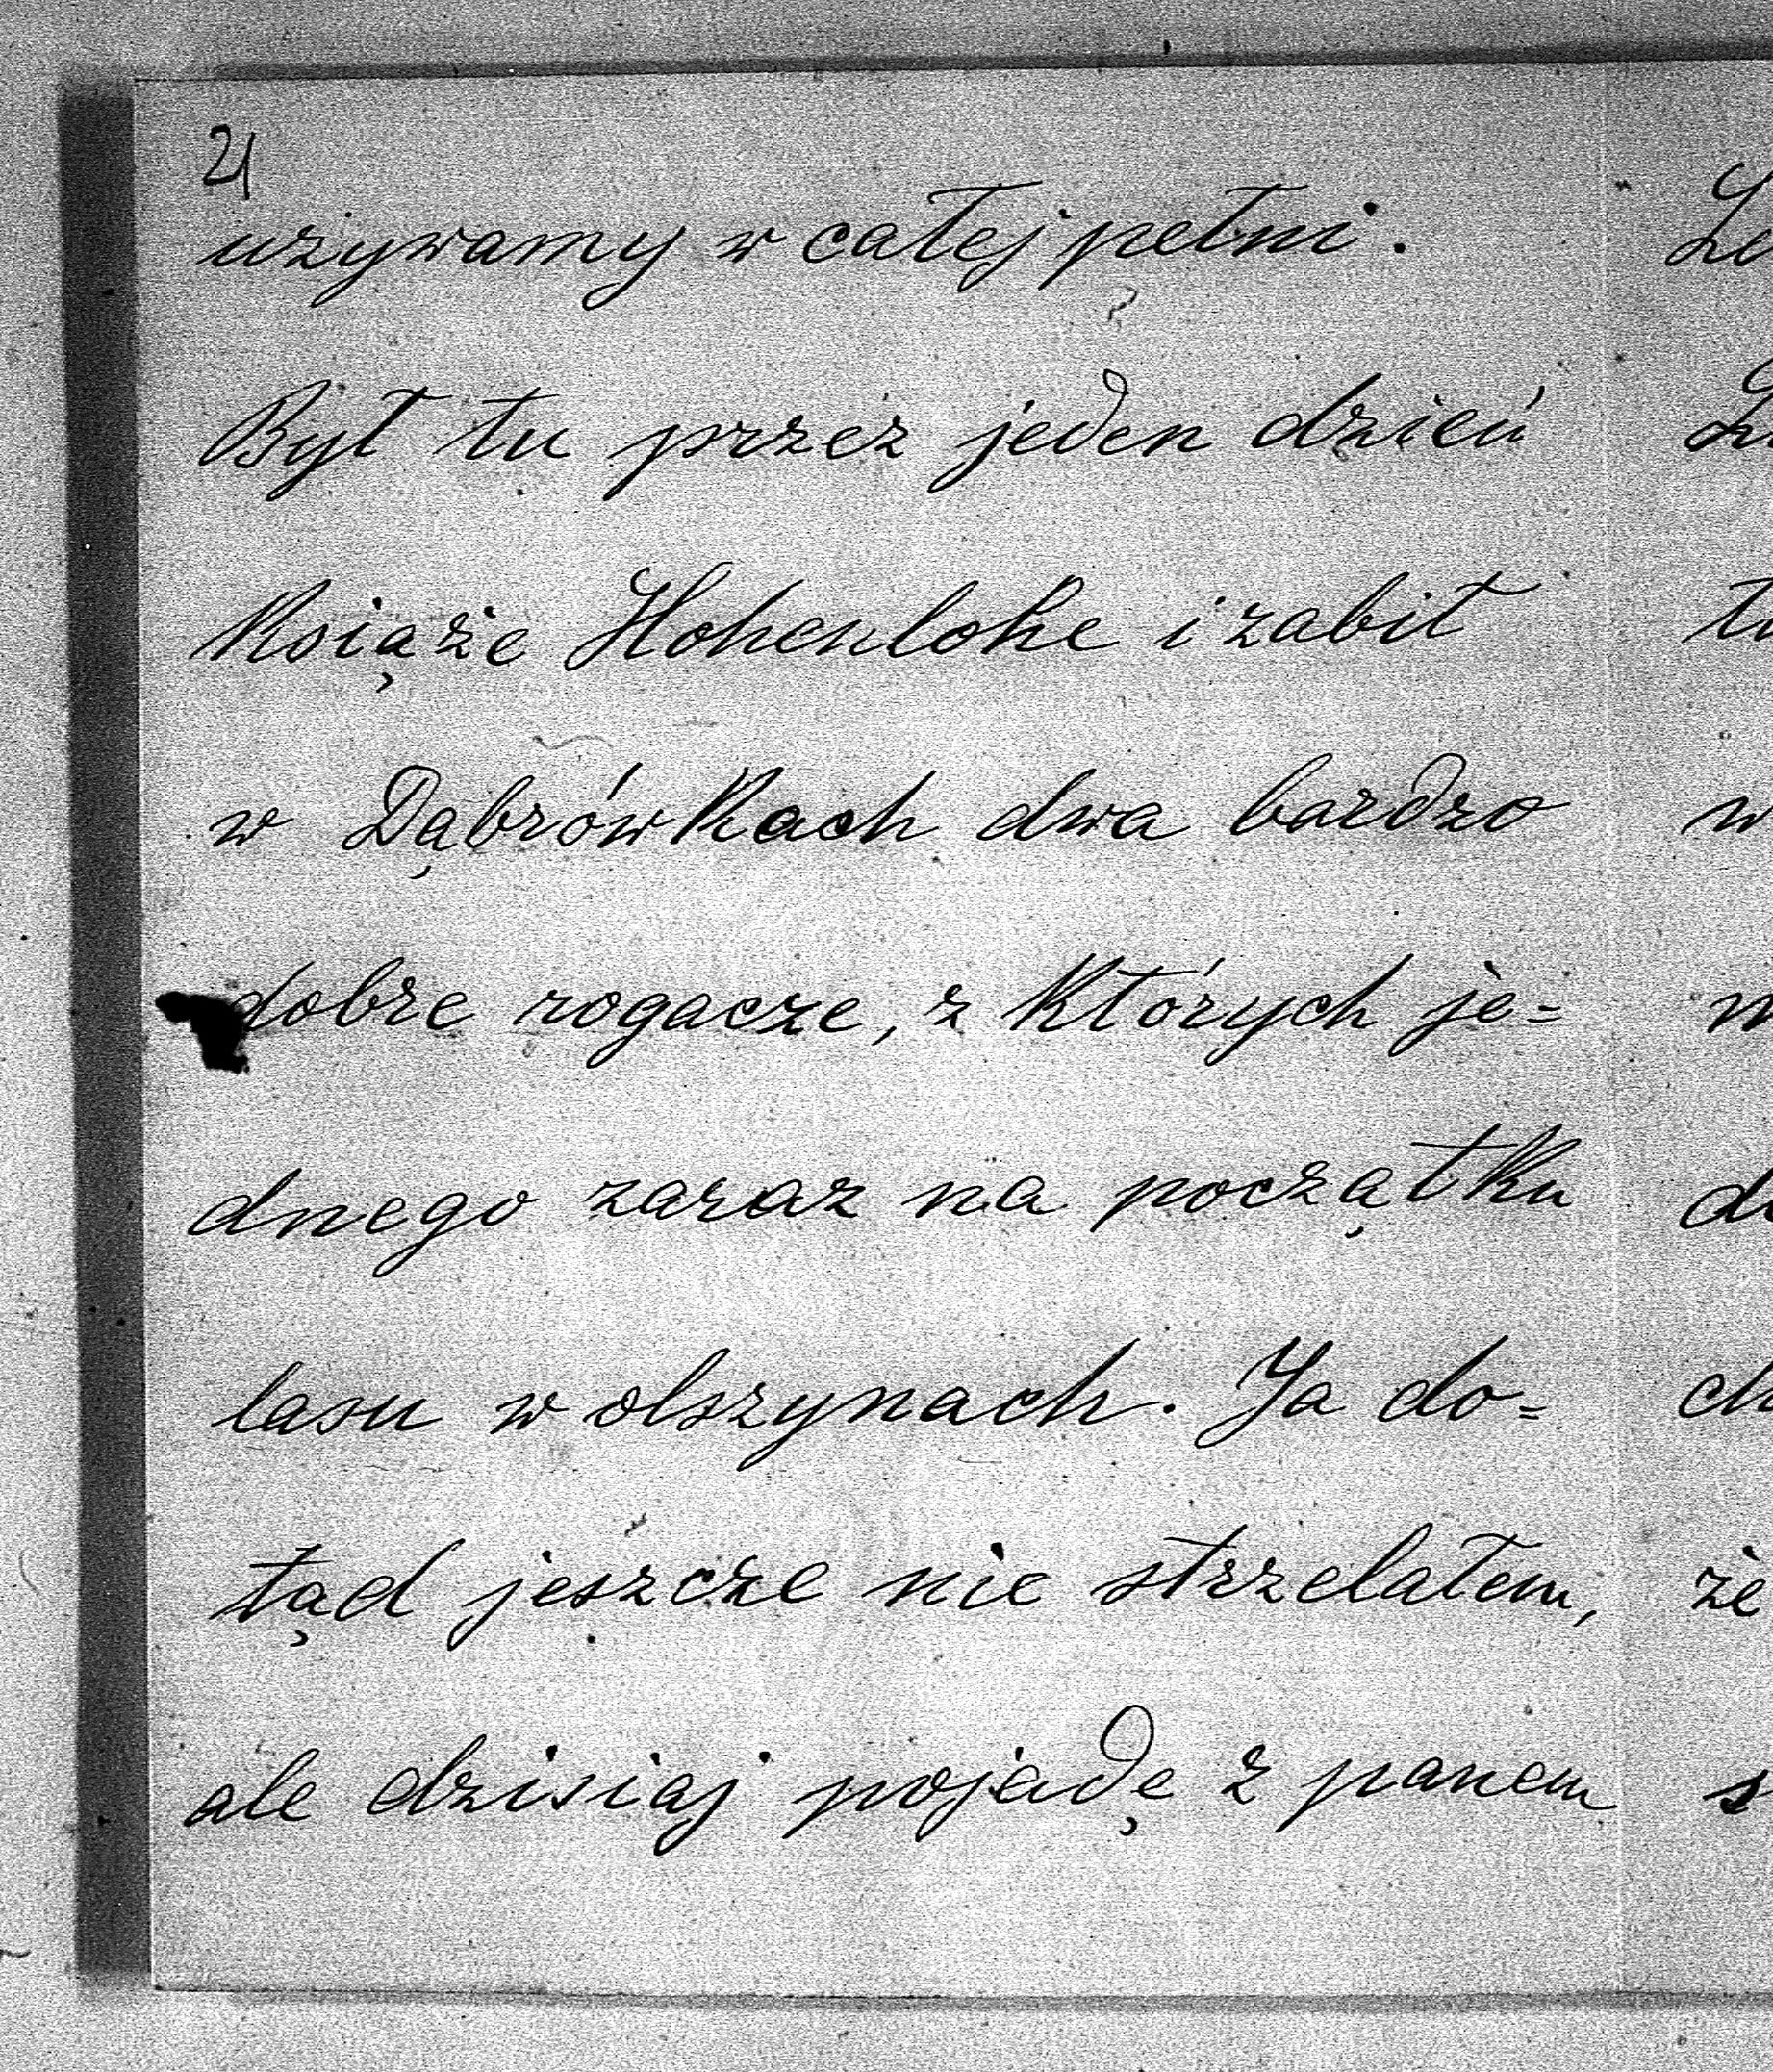 21
używamy w całej pełni.
Był tu przez jeden dzień
Książe Hohenlohe i zabił
w Dąbrówkach dwa bardzo
dobre rogacze, z których je=
dnego zaraz na początku
lasu w olszynach. Ja do=
tąd jeszcze nie strzelałem,
ale dzisiaj pojadę z panem